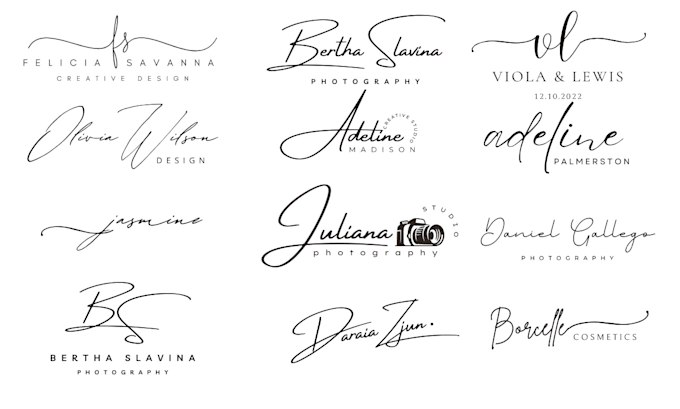 fs
FELICIA SAVANNA
CREATIVE DESIGN
Bertha Slavina
PHOTOGRAPHY
vl
VIOLA & LEWIS
12.10.2022
Olivia Wilson
DESIGN
Adeline
CREATIVE STUDIO
MADISON
adeline
PALMERSTON
jasmine
Juliana
STUDIO
photography
Daniel Gallego
PHOTOGRAPHY
BS
BERTHA SLAVINA
PHOTOGRAPHY
Daraia Zjun.
Borcelle
COSMETICS